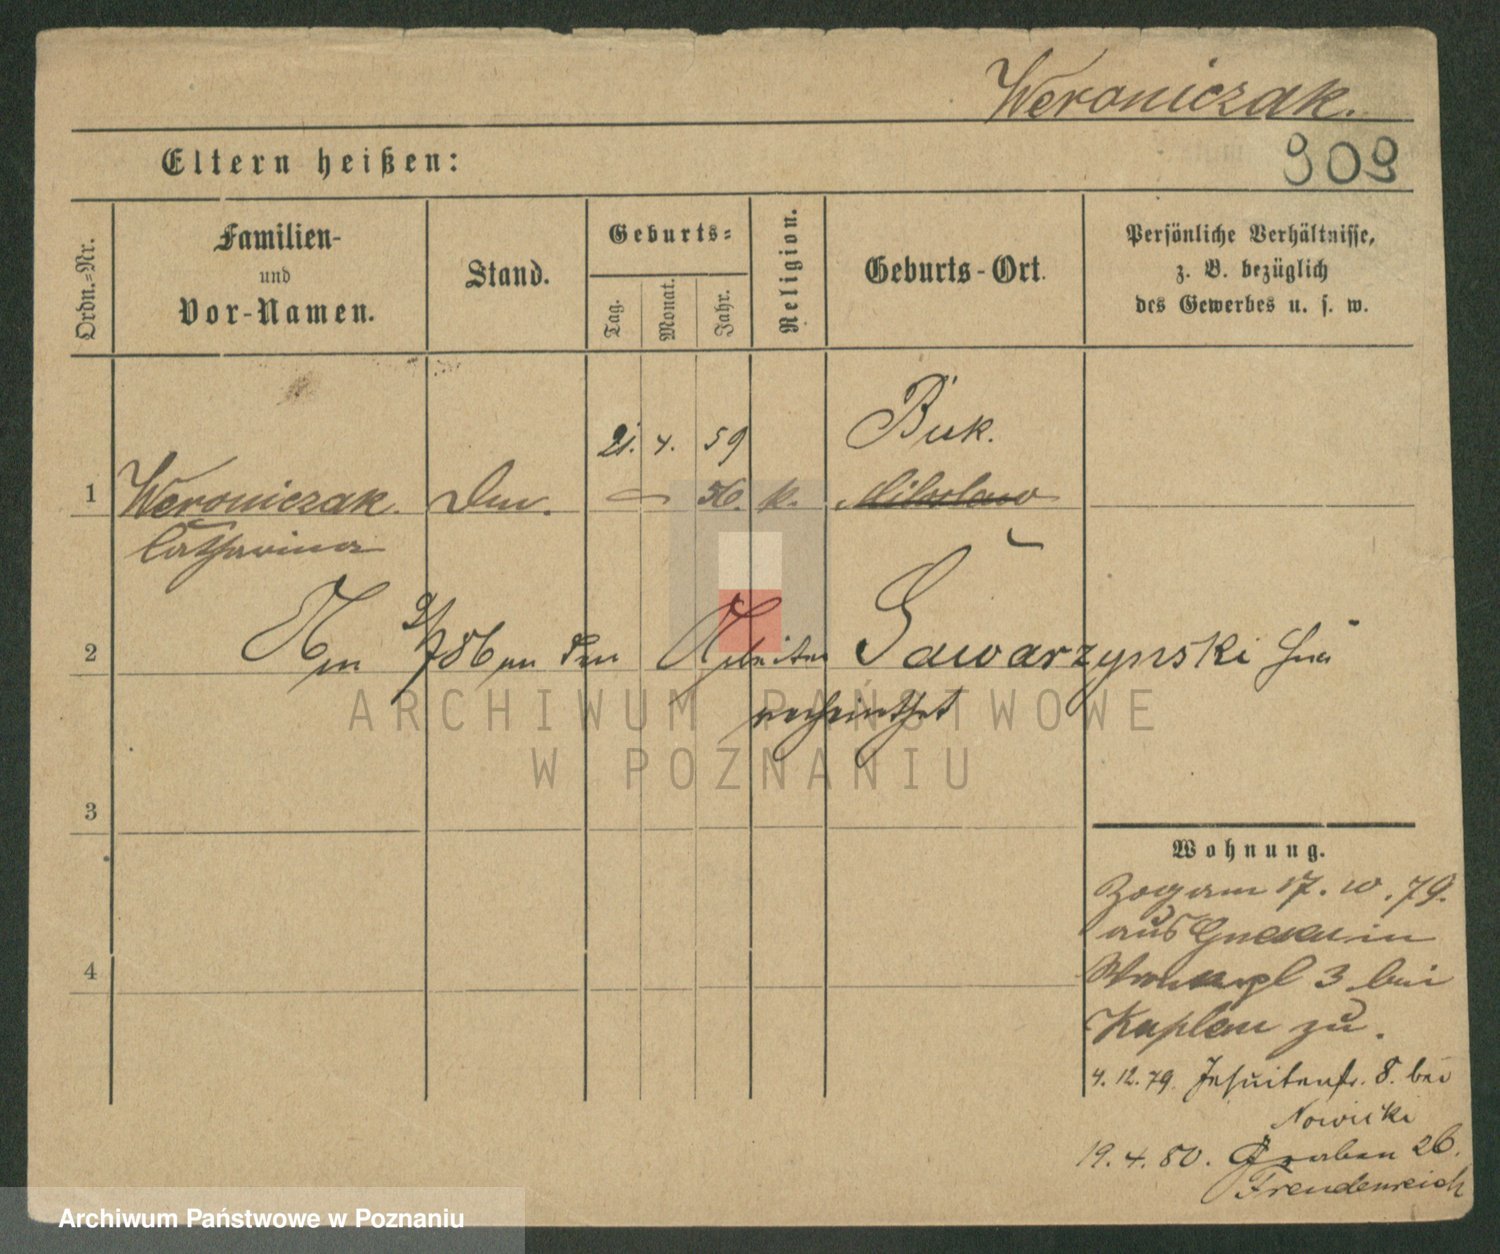 Weroniczak.
909
Eltern heißen:
Ordn.-Nr.
Familien-
und
Vor-Namen.
Stand.
Geburts-
Tag.
Monat.
Jahr.
Religion.
Geburts-Ort.
Persönliche Verhältnisse,
z. B. bezüglich
des Gewerbes u. s. w.
21. 4. 59 Buk.
1 Weroniczak. 56. k.
Catharina
2 Am 9/7 86 an den Arbeiter Gawarzynski hier
verheirathet
3
4
Wohnung.
Zog am 17. 10. 79.
aus Gnesen in
3 bei
Kaplan zu.
4. 12. 79. Jesuitenstr. 8. bei
Nowicki
19. 4. 80. Graben 26.
Freudenreich
ARCHIWUM PAŃSTWOWE
W POZNANIU
Archiwum Państwowe w Poznaniu